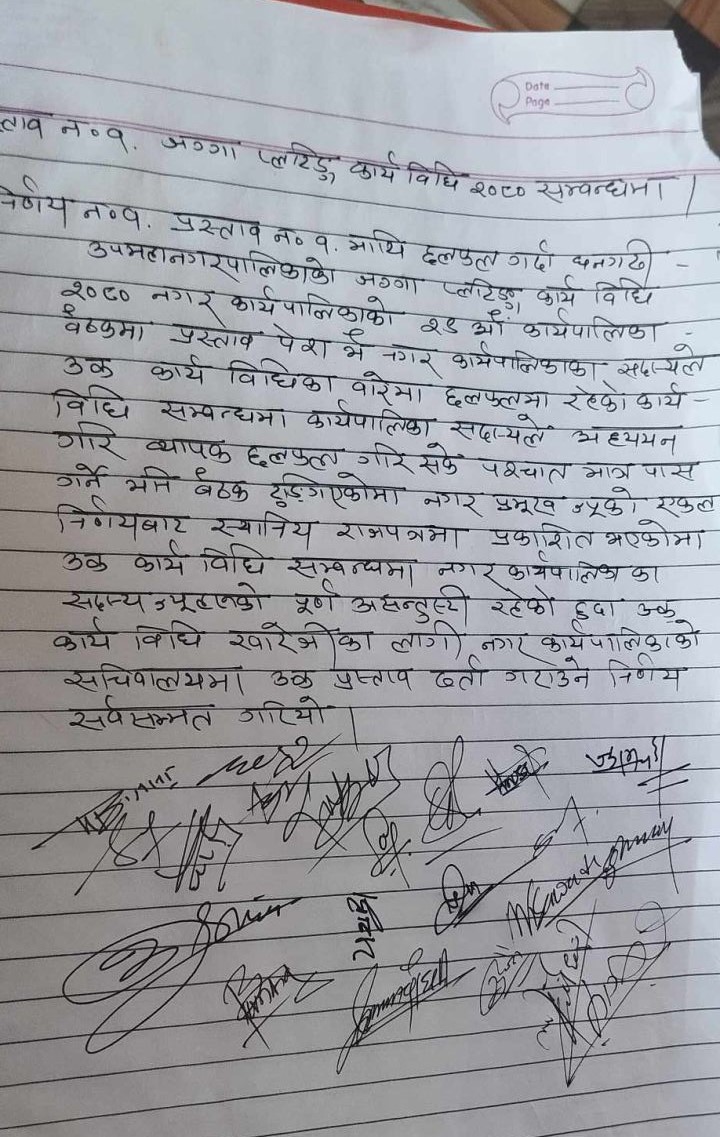 Date
Page
ताव न०१. जग्गा प्लटिङ्ग कार्य विधि २०८० सम्वन्धमा।
निर्णय न०१. प्रस्ताव न०१. माथि छलफल गर्दा धनगढी -
उपमहानगरपालिकाको जग्गा प्लटिङ्ग कार्य विधि
२०८० नगर कार्यपालिकाको २९ औं कार्यपालिका -
बैठकमा प्रस्ताव पेश भै नगर कार्यपालिकाका सदस्यले
उक्त कार्य विधिका वारेमा छलफलमा रहेको कार्य -
विधि सम्वन्धमा कार्यपालिका सदस्यले अध्ययन
गरि व्यापक छलफल गरि सके पश्चात मात्र पास
गर्ने भनि बैठक टुङ्गिएकोमा नगर प्रमुख ज्यूको एकल
निर्णयबाट स्थानिय राजपत्रमा प्रकाशित भएकोमा
उक्त कार्य विधि सम्वन्धमा नगर कार्यपालिका का
सदस्य ज्यूहरुको पूर्ण असन्तुस्टी रहेको हुदा उक्त
कार्य विधि खारेजीका लागी नगर कार्यपालिकाको
सचिवालयमा उक्त प्रस्ताव दर्ता गराउने निर्णय
सर्वसम्मत गरियो।